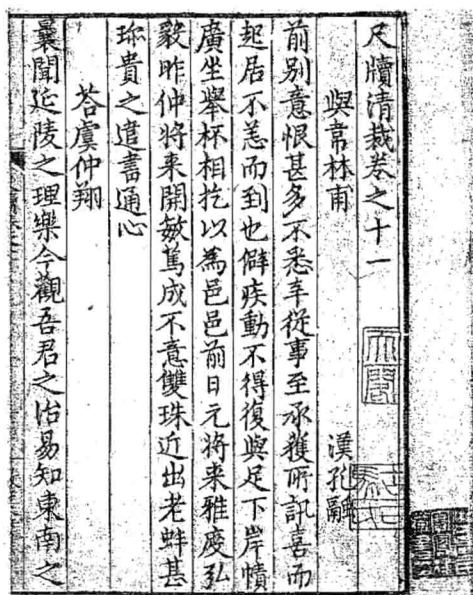 尺牘清裁卷之十一
與韋林甫　漢孔融
前别意恨甚多不悉辛從事至承獲所訊喜而
起居不恙而到也僻疾動不得復與足下岸幘
廣坐舉杯相扵以為邑邑前日元将来雅度弘
毅昨仲将来開敏篤成不意雙珠近出老蚌甚
珎貴之遣書通心
荅虞仲翔
曩聞延陵之理樂今觀吾君之治易知東南之